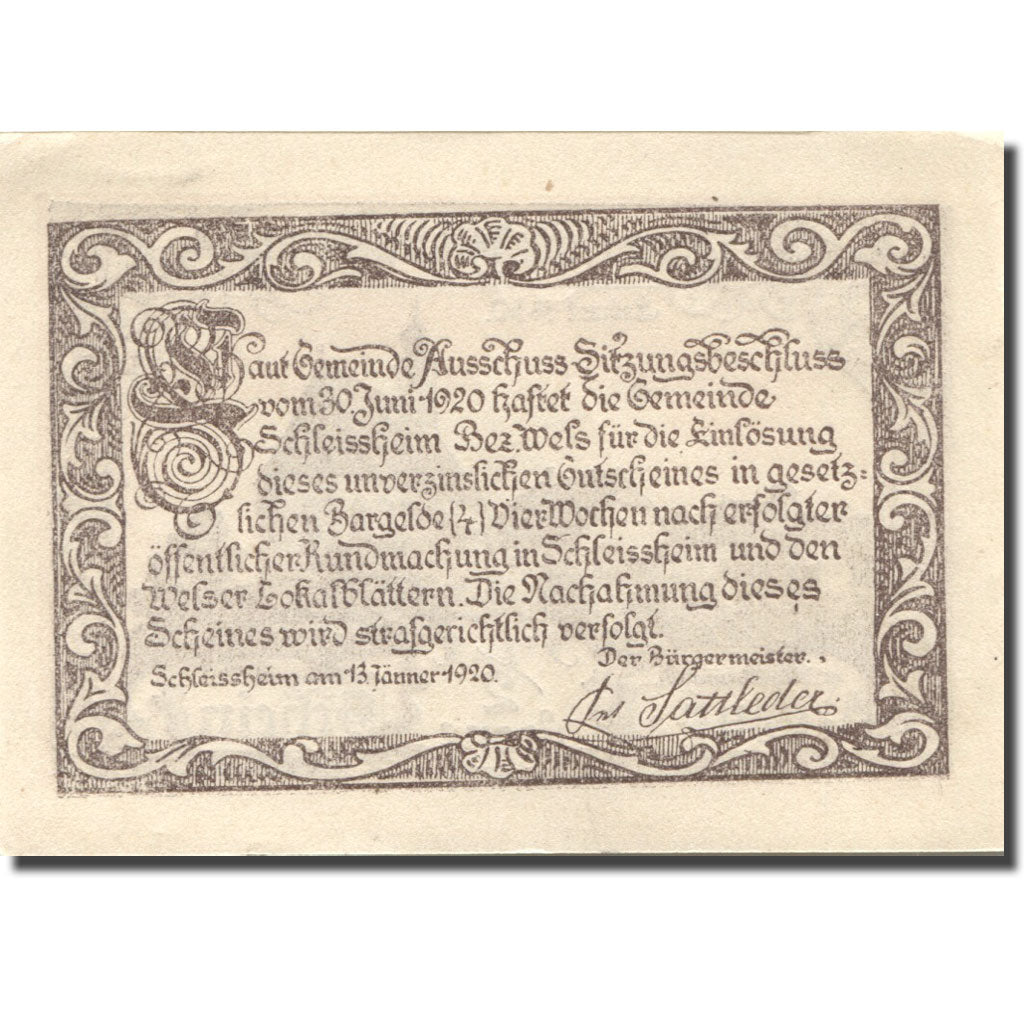 Laut Gemeinde Ausschuss-Sitzungsbeschluss
vom 30 Juni 1920 haftet die Gemeinde
Schleissheim Bez. Wels für die Einlösung
dieses unverzinslichen Gutscheines in gesetz-
lichen Bargelde (4) Vier Wochen nach erfolgter
öffentlicher Kundmachung in Schleissheim und den
Welser Lokalblättern. Die Nachahmung dieses
Scheines wird strafgerichtlich verfolgt.
Der Bürgermeister.
Schleissheim am 13. Jänner 1920.
Sattleder